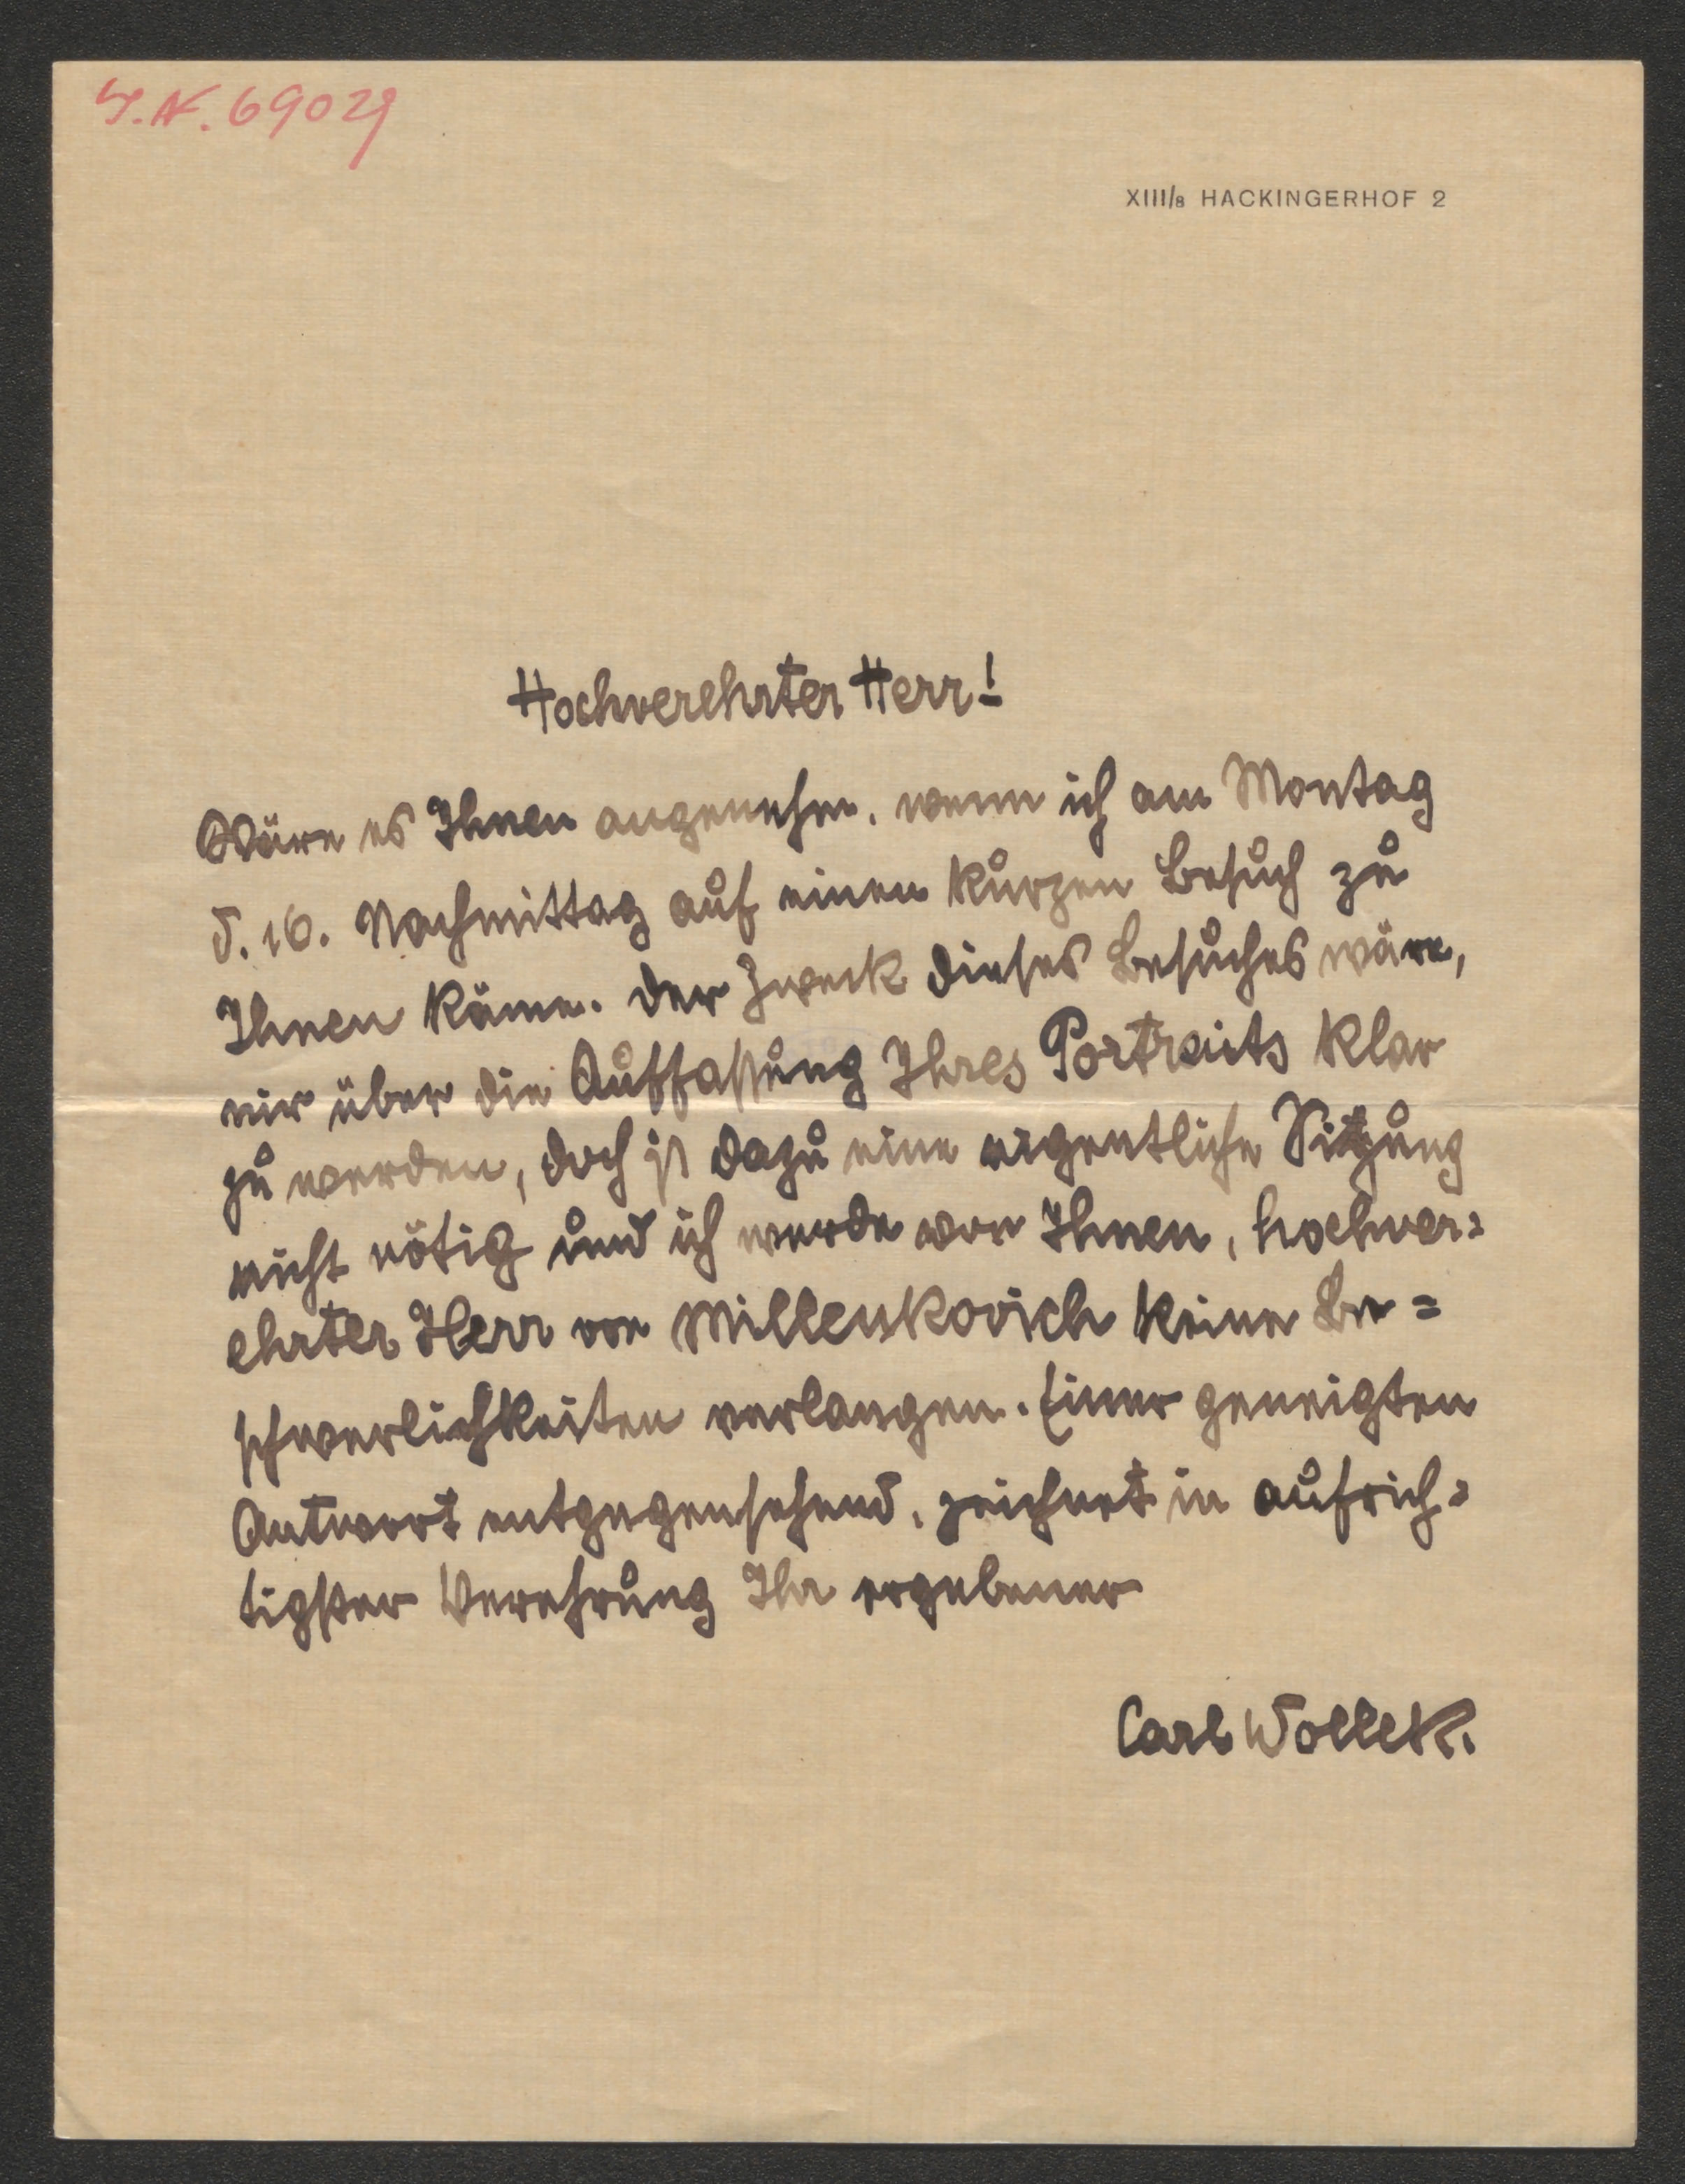 I.N. 69029
XIII/8 HACKINGERHOF 2
Hochverehrter Herr!
Wäre es Ihnen angenehm, wenn ich am Montag
d. 16. Nachmittag auf einen kurzen Besuch zu
Ihnen käme. Der Zweck dieses Besuches wäre,
mir über die Auffassung Ihres Portraits klar
zu werden, doch ist dazu eine eigentliche Sitzung
nicht nötig und ich werde von Ihnen, hochver=
ehrter Herr von Millenkovich keine Be=
schwerlichkeiten verlangen. Einer geneigten
Antwort entgegensehend, zeichnet in aufrich=
tigster Verehrung Ihr ergebener
Carl Wollek.